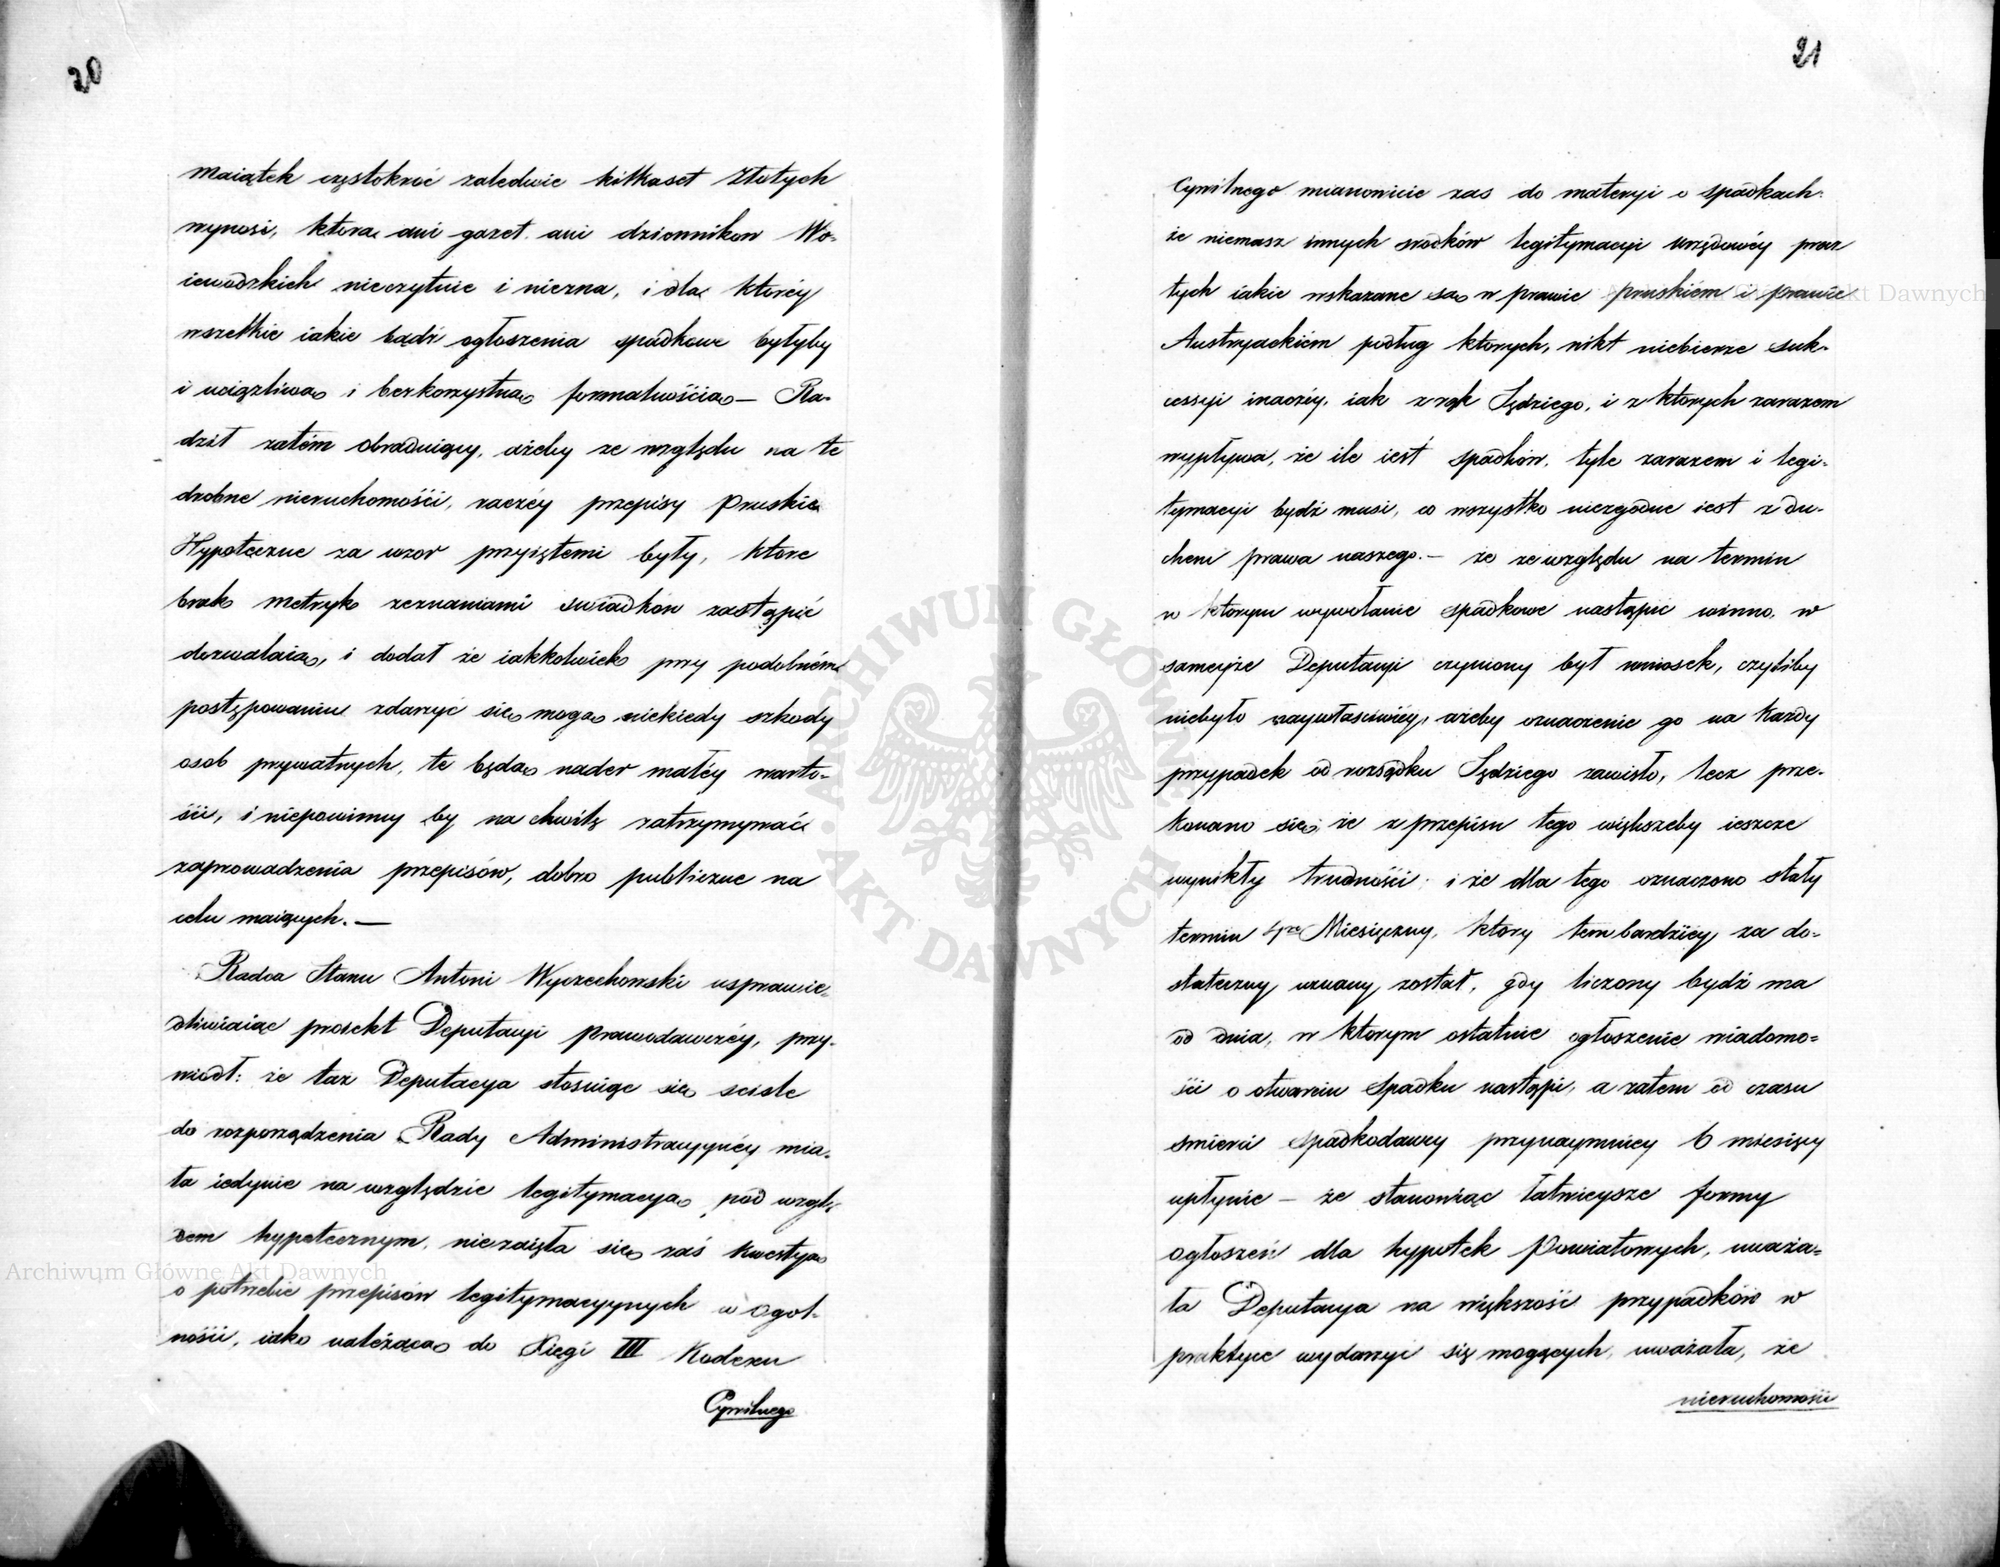 20
maiątek częstokroć zaledwie kilkaset Złotych
wynosi, która ani gazet ani dzienników Wo-
iewodzkich nieczytuie i niezna, i dla któréy
wszelkie iakie bądź ogłoszenia spadkowe byłyby
i uciążliwą i bezkorzystną formalnością — Ra-
dził zatém obraduiący, ażeby ze względu na te
drobne nieruchomości, raczéy przepisy Pruskie
Hypoteczne za wzor przyiętemi były, które
brak metryk zeznaniami swiadkow zastąpić
dozwalaią, i dodał że iakkolwiek przy podobném
postępowaniu zdarzyć się mogą niekiedy szkody
osob prywatnych, te będą nader małéy warto-
ści, i niepowinny by na chwilę zatrzymywać
zaprowadzenia przepisów, dobro publiczne na
celu maiących. —
Radca Stanu Antoni Wyczechowski usprawie-
dliwiaiąc proiekt Deputacyi Prawodawczéy, przy-
wiodł: że taż Deputacya stosuiąc się sciśle
do rozporządzenia Rady Administracyynéy mia-
ła iedynie na względzie legitymacyą pod wzglę-
dem hypotecznym, niezaięła się zaś kwestyą
o potrzebie przepisów legitymacyynych w ogol-
ności, iako należącą do Xięgi III Kodexu
Cywilnego
21
Cywilnego mianowicie zas do materyi o spadkach:
że niemasz innych srodków legitymacyi urzędowéy prócz
tych iakie wskazane są w prawie pruskiém i prawie
Austryackiém podług ktorych, nikt niebierze suk-
cessyi inaczéy, iak z rąk Sędziego, i z ktorych zarazem
wypływa, że ile iest spadków, tyle zarazem i legi-
tymacyi bydź musi, co wszystko niezgodne iest z du-
chem prawa naszego. — że ze względu na termin
w ktorym wywołanie spadkowe nastąpić winno, w
sameyże Deputacyi czyniony był wniosek, czyliby
niebyło naywłaściwiéy, ażeby oznaczenie go na każdy
przypadek od rozsądku Sędziego zawisło, lecz prze-
konano się, że z przepisu tego większeby ieszcze
wynikły trudności; i że dla tego oznaczono stały
termin Miesięczny, ktory tem bardziéy za do-
stateczny uznany został, gdy liczony bydź ma
od dnia, w ktorym ostatnie ogłoszenie wiadomo-
ści o otwarciu Spadku nastąpi, a zatem od czasu
smierci Spadkodawcy przynaymniéy 6 miesięcy
upłynie — że stanowiąc łatwieysze formy
ogłoszeń dla hypotek Powiatowych, uważa-
ła Deputacya na większość przypadków w
praktyce wydarzyć się mogących, uważała, że
nieruchomości
Archiwum Główne Akt Dawnych
Archiwum Główne Akt Dawnych
ARCHIWUM GŁÓWNE AKT DAWNYCH